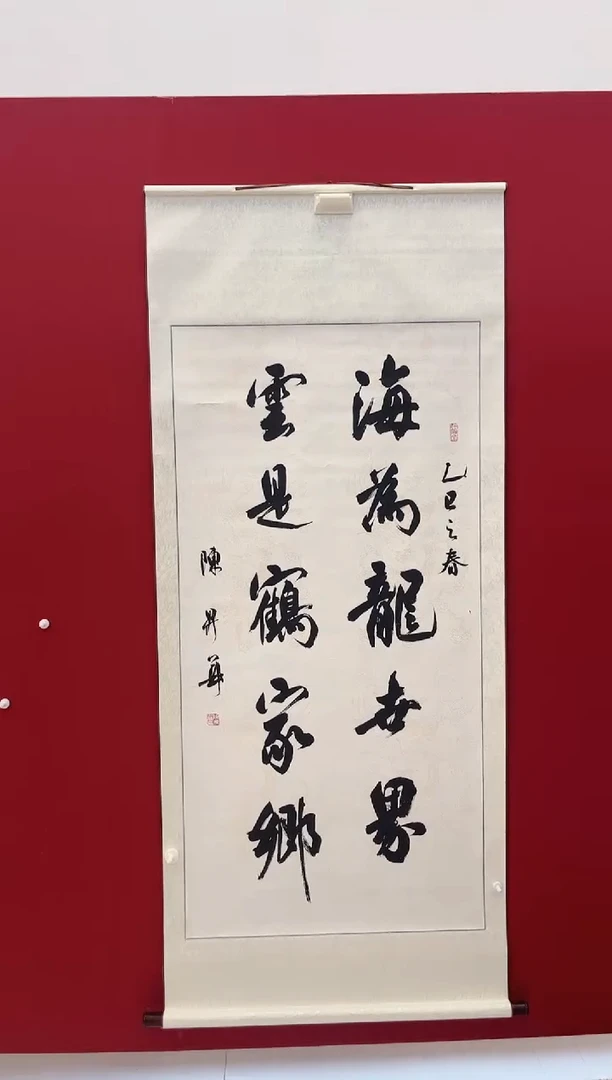 乙巳之春
海為龍世界
雲是鶴家鄉
陳昇華